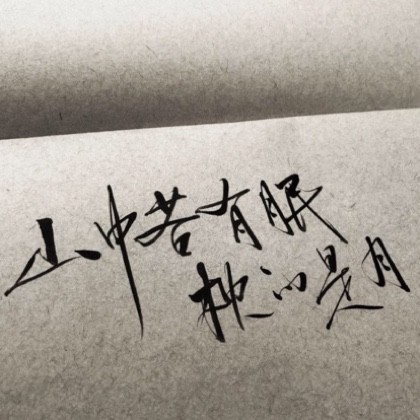 山中若有眠
枕的是月